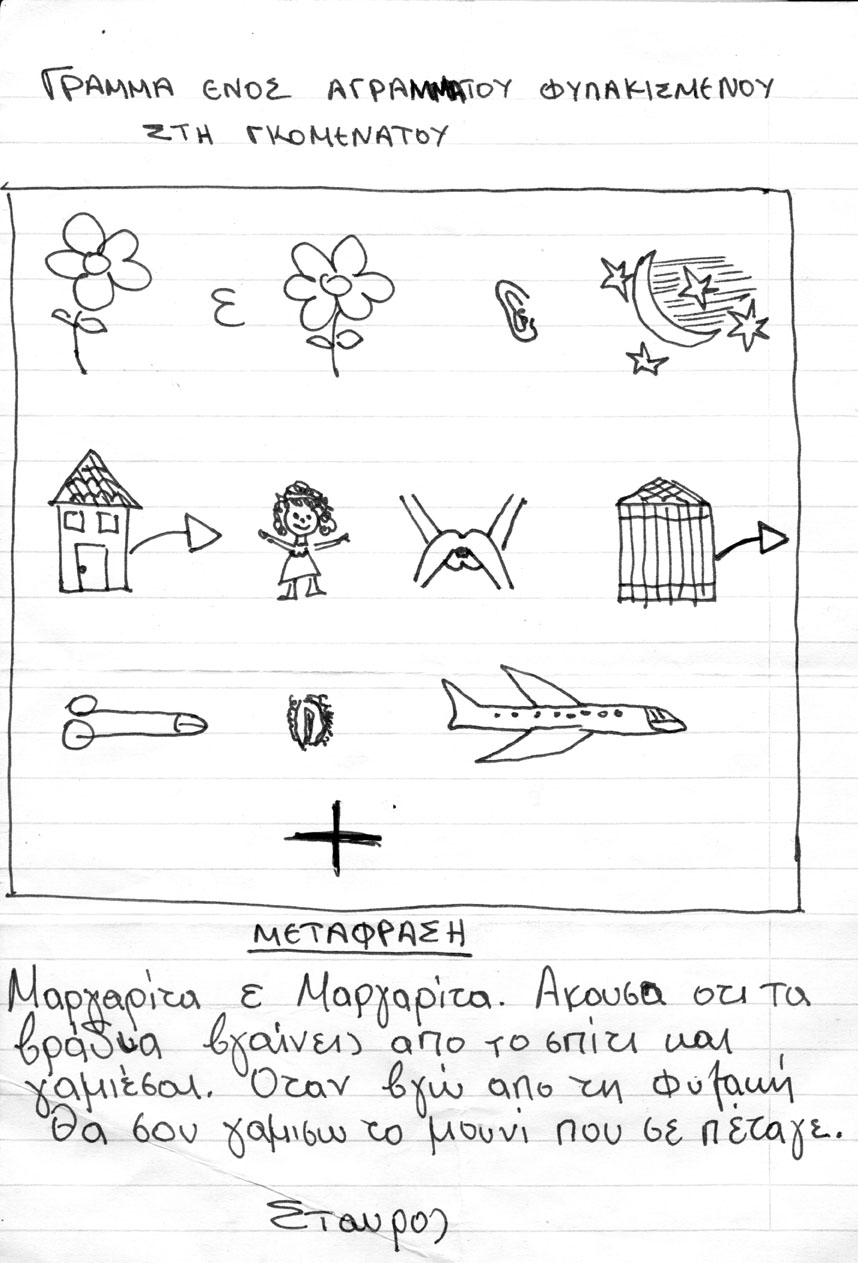 ΓΡΑΜΜΑ ΕΝΟΣ ΑΓΡΑΜΜΑΤΟΥ ΦΥΛΑΚΙΣΜΕΝΟΥ
ΣΤΗ ΓΚΟΜΕΝΑΤΟΥ
ε
ΜΕΤΑΦΡΑΣΗ
Μαργαρίτα ε Μαργαρίτα. Ακουσα οτι τα
βράδυα βγαίνεις απο το σπίτι και
γαμιέσαι. Οταν βγώ απο τη φυλακή
θα σου γαμισω το μουνί που σε πέταγε.
Σταυρος